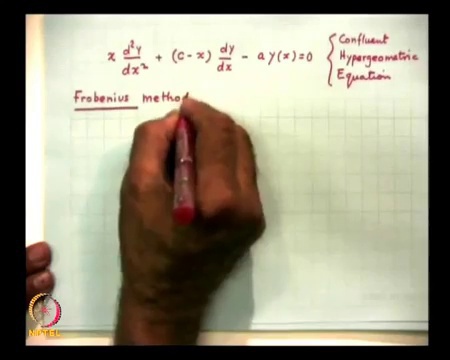 x d²y/dx² + (c - x) dy/dx - a y(x) = 0
Confluent
Hypergeometric
Equation
Frobenius method
NPTEL